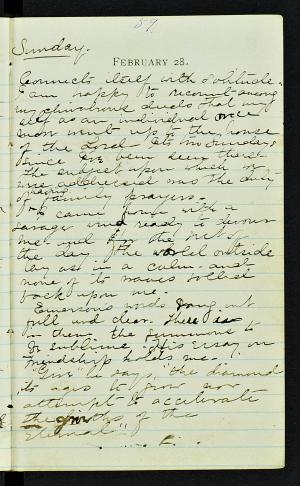 59
Sunday.
FEBRUARY 28.
Connects itself with solitude.
I am happy to recount among
my churchwork deeds that my
self as an individual once
more went up to the house
of the Lord. Its no Sundays
since I've been been there.
The subject upon which
we addressed was the duty
of family prayers.
I came home with a
ready to devour
me and for the rest of
the day. The world outside
lay as in a calm - and
none of its waves rolled
back upon me.
Emerson's words rang out
full and clear. There is
in them the summons to
sublime. His essay on
Friendship holds me.
"Give" he says, "the diamond
its ages to grow nor
attempt to accelerate
the births of the
Eternal"